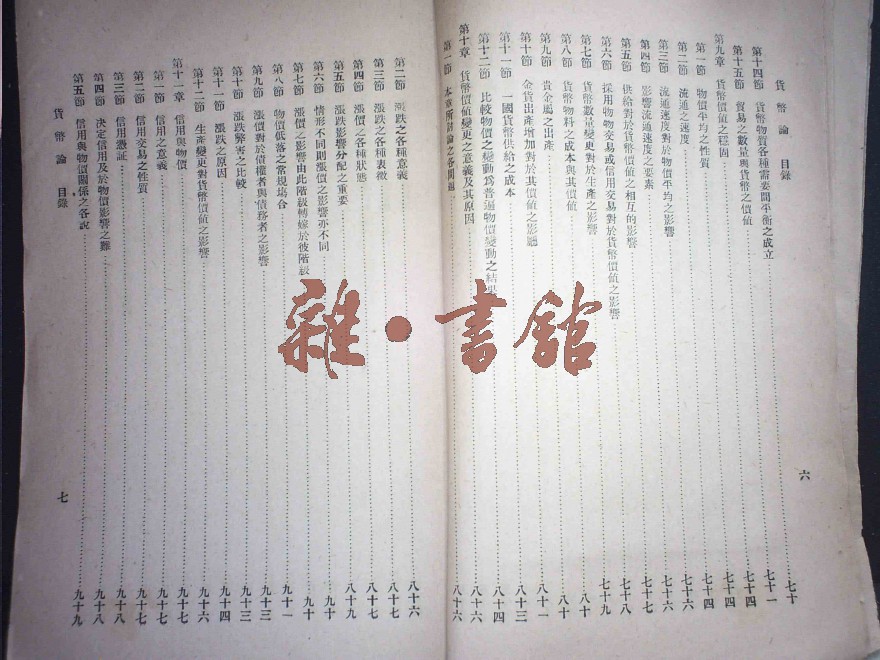 貨幣論 目錄
六
第十四節 貨幣物質各種需要間平衡之成立 七十
第十五節 貿易之數量與貨幣之價值 七十一
第九章 貨幣價值之穩固 七十四
第一節 物價平均之性質 七十四
第二節 流通之速度 七十四
第三節 流通速度對於物價平均之影響 七十六
第四節 影響流通速度之要素 七十六
第五節 供給對於貨幣價值之相互的影響 七十七
第六節 採用物物交易或信用交易對於貨幣價值之影響 七十八
第七節 貨幣數量變更對於生產之影響 七十九
第八節 貨幣物料之成本與其價值 八十
第九節 貴金屬之出產 八十
第十節 金貨出產增加對於其價值之影響 八十一
第十一節 一國貨幣供給之成本 八十三
第十二節 比較物價之變動爲普遍物價變動之結果 八十四
第十章 貨幣價值變更之意義及其原因 八十六
第一節 本章所討論之各問題 八十六
第二節 漲跌之各種意義 八十六
第三節 漲跌之各種表徵 八十七
第四節 漲價之各種狀態 八十七
第五節 漲跌影響分配之重要 八十九
第六節 情形不同則漲價之影響亦不同 九十
第七節 漲價之影響由此階級轉嫁於彼階級 九十
第八節 物價低落之常規場合 九十一
第九節 漲價對於債權者與債務者之影響 九十三
第十節 漲跌弊害之比較 九十三
第十一節 漲跌之原因 九十四
第十二節 生產變更對貨幣價值之影響 九十六
第十一章 信用與物價 九十七
第一節 信用之意義 九十七
第二節 信用交易之性質 九十七
第三節 信用憑証 九十八
第四節 決定信用及於物價影響之難 九十八
第五節 信用與物價關係之各說 九十九
貨幣論 目錄
七
雜·書舘